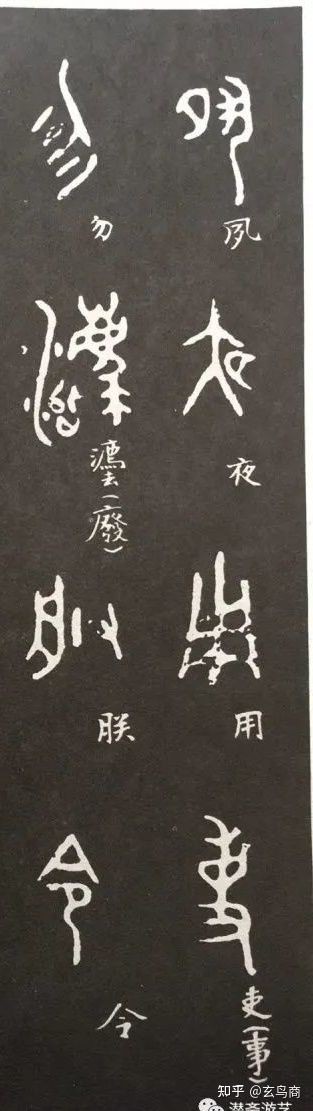 夙
夜
用
吏(事)
勿
灋(廢)
朕
令
知乎 @玄鸟商
潜斋游艺